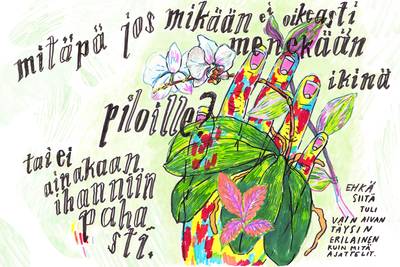 mitäpä jos mikään ei oikeasti
menekään
ikinä
piloille?
tai ei
ainakaan
ihan niin
paha
sti.
EHKÄ
SIITÄ
TULI
VAIN AIVAN
TÄYSIN
ERILAINEN
KUIN MITÄ
AJATTELIT.